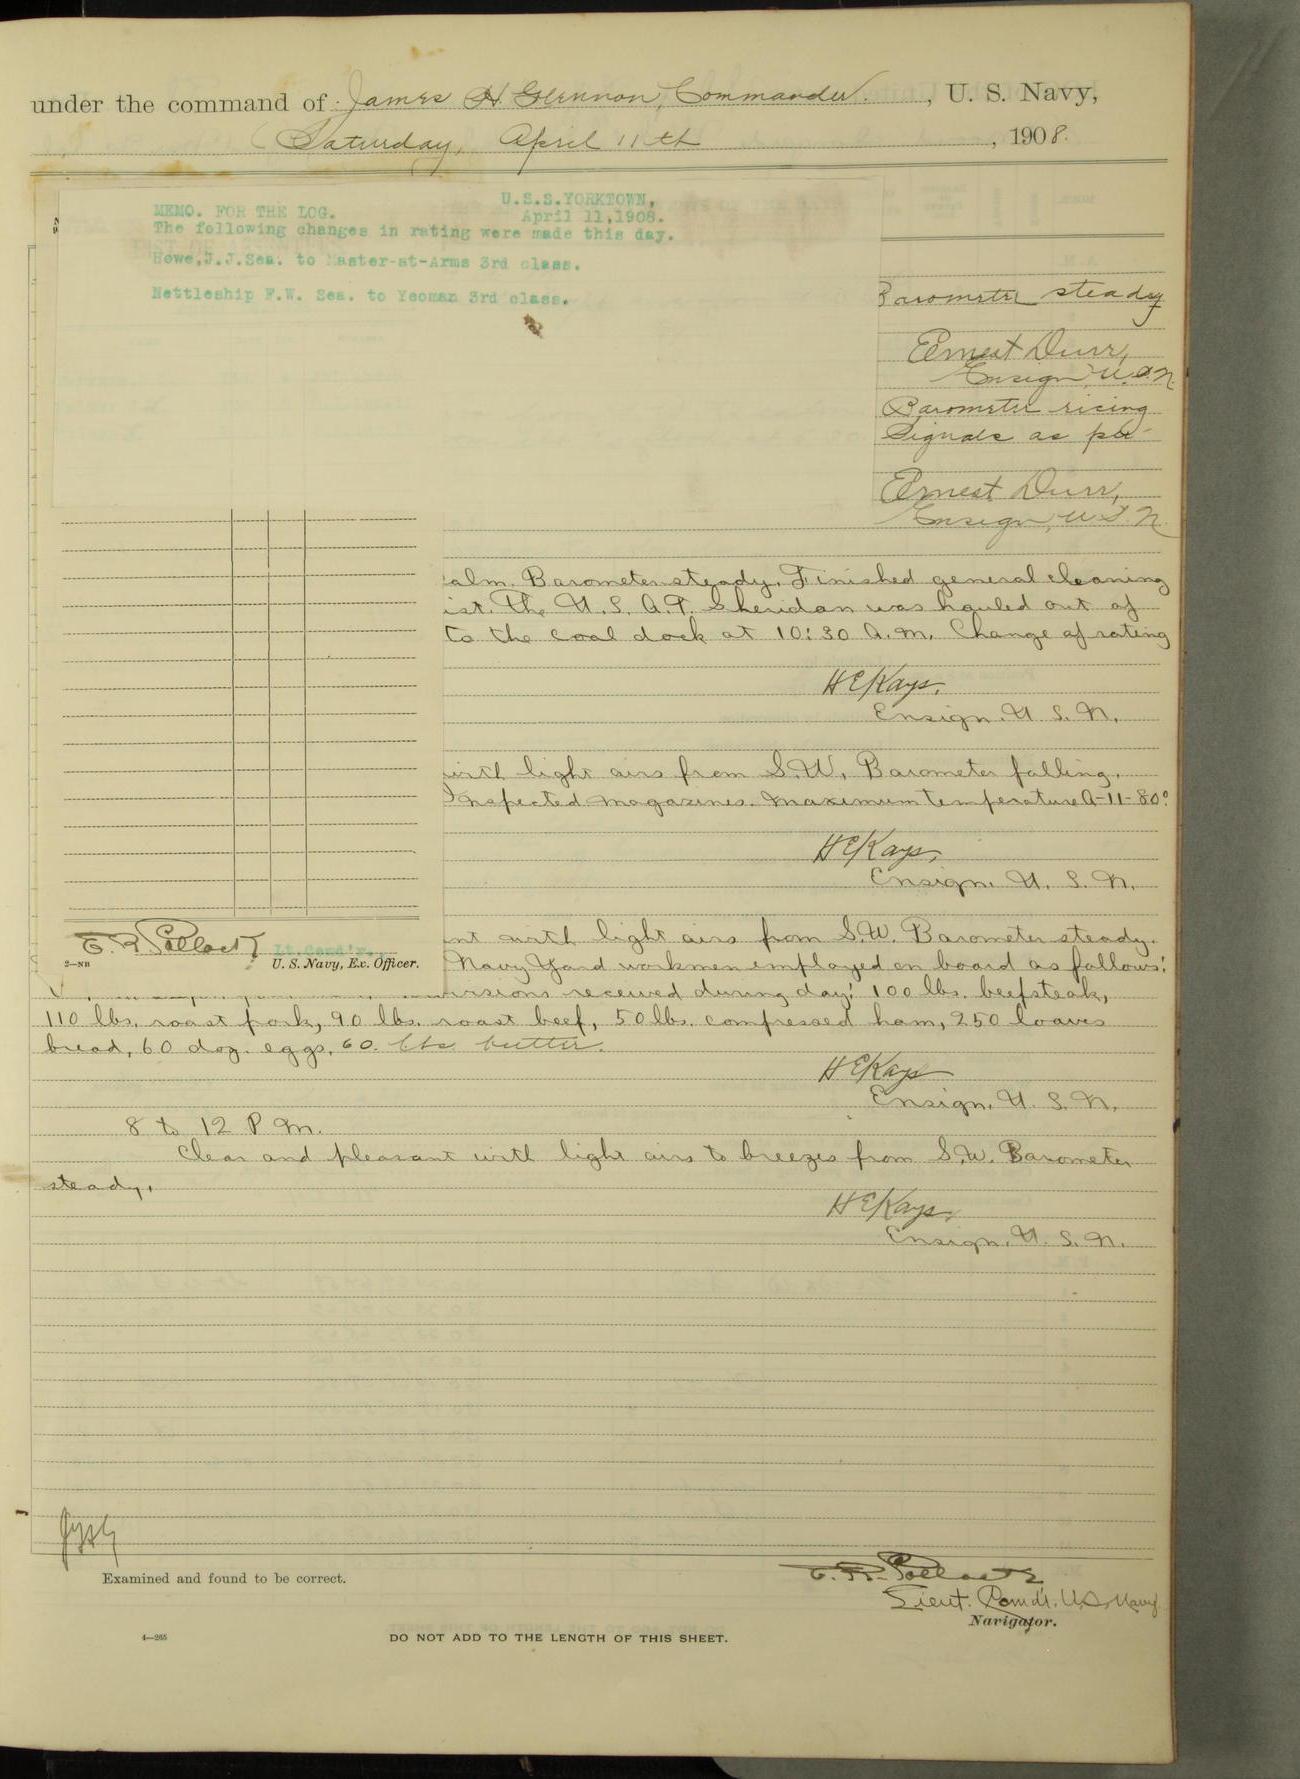 under the command of James H. Glennon, Commander, U. S. Navy,
Saturday, April 11th, 1908.
U.S.S.YORKTOWN,
MEMO. FOR THE LOG. April 11,1908.
The following changes in rating were made this day.
Howe,J.J.Sea. to Master-at-Arms 3rd class.
Nettleship F.W. Sea. to Yeoman 3rd class.
Barometer steady
Ernest Durr,
Ensign U.S.N.
Barometer rising
Signals as per
Ernest Durr,
Ensign, U.S.N.
alm. Barometer steady. Finished general cleaning
ist. The U.S.A.T. Sheridan was hauled out of
to the coal dock at 10:30 A.M. Change of rating
H E Kays,
Ensign, U. S. N.
with light airs from S.W. Barometer falling.
Inspected magazines. Maximum temperature A-11-80°
H E Kays,
Ensign, U. S. N.
nt with light airs from S.W. Barometer steady.
E. R. Pollock Lt.Comd'r.,
2—NB U. S. Navy, Ex. Officer.
Navy Yard workmen employed on board as follows:
visions received during day: 100 lbs. beefsteak,
110 lbs. roast pork, 90 lbs. roast beef, 50 lbs. compressed ham, 250 loaves
bread, 60 doz. eggs, 60. lbs butter.
H E Kays
Ensign, U. S. N.
8 to 12 P M.
Clear and pleasant with light airs to breezes from S.W. Barometer
steady.
H E Kays,
Ensign, U. S. N.
Examined and found to be correct.
E. R. Pollock
Lieut. Comdr. U.S. Navy
Navigator.
4—265
DO NOT ADD TO THE LENGTH OF THIS SHEET.